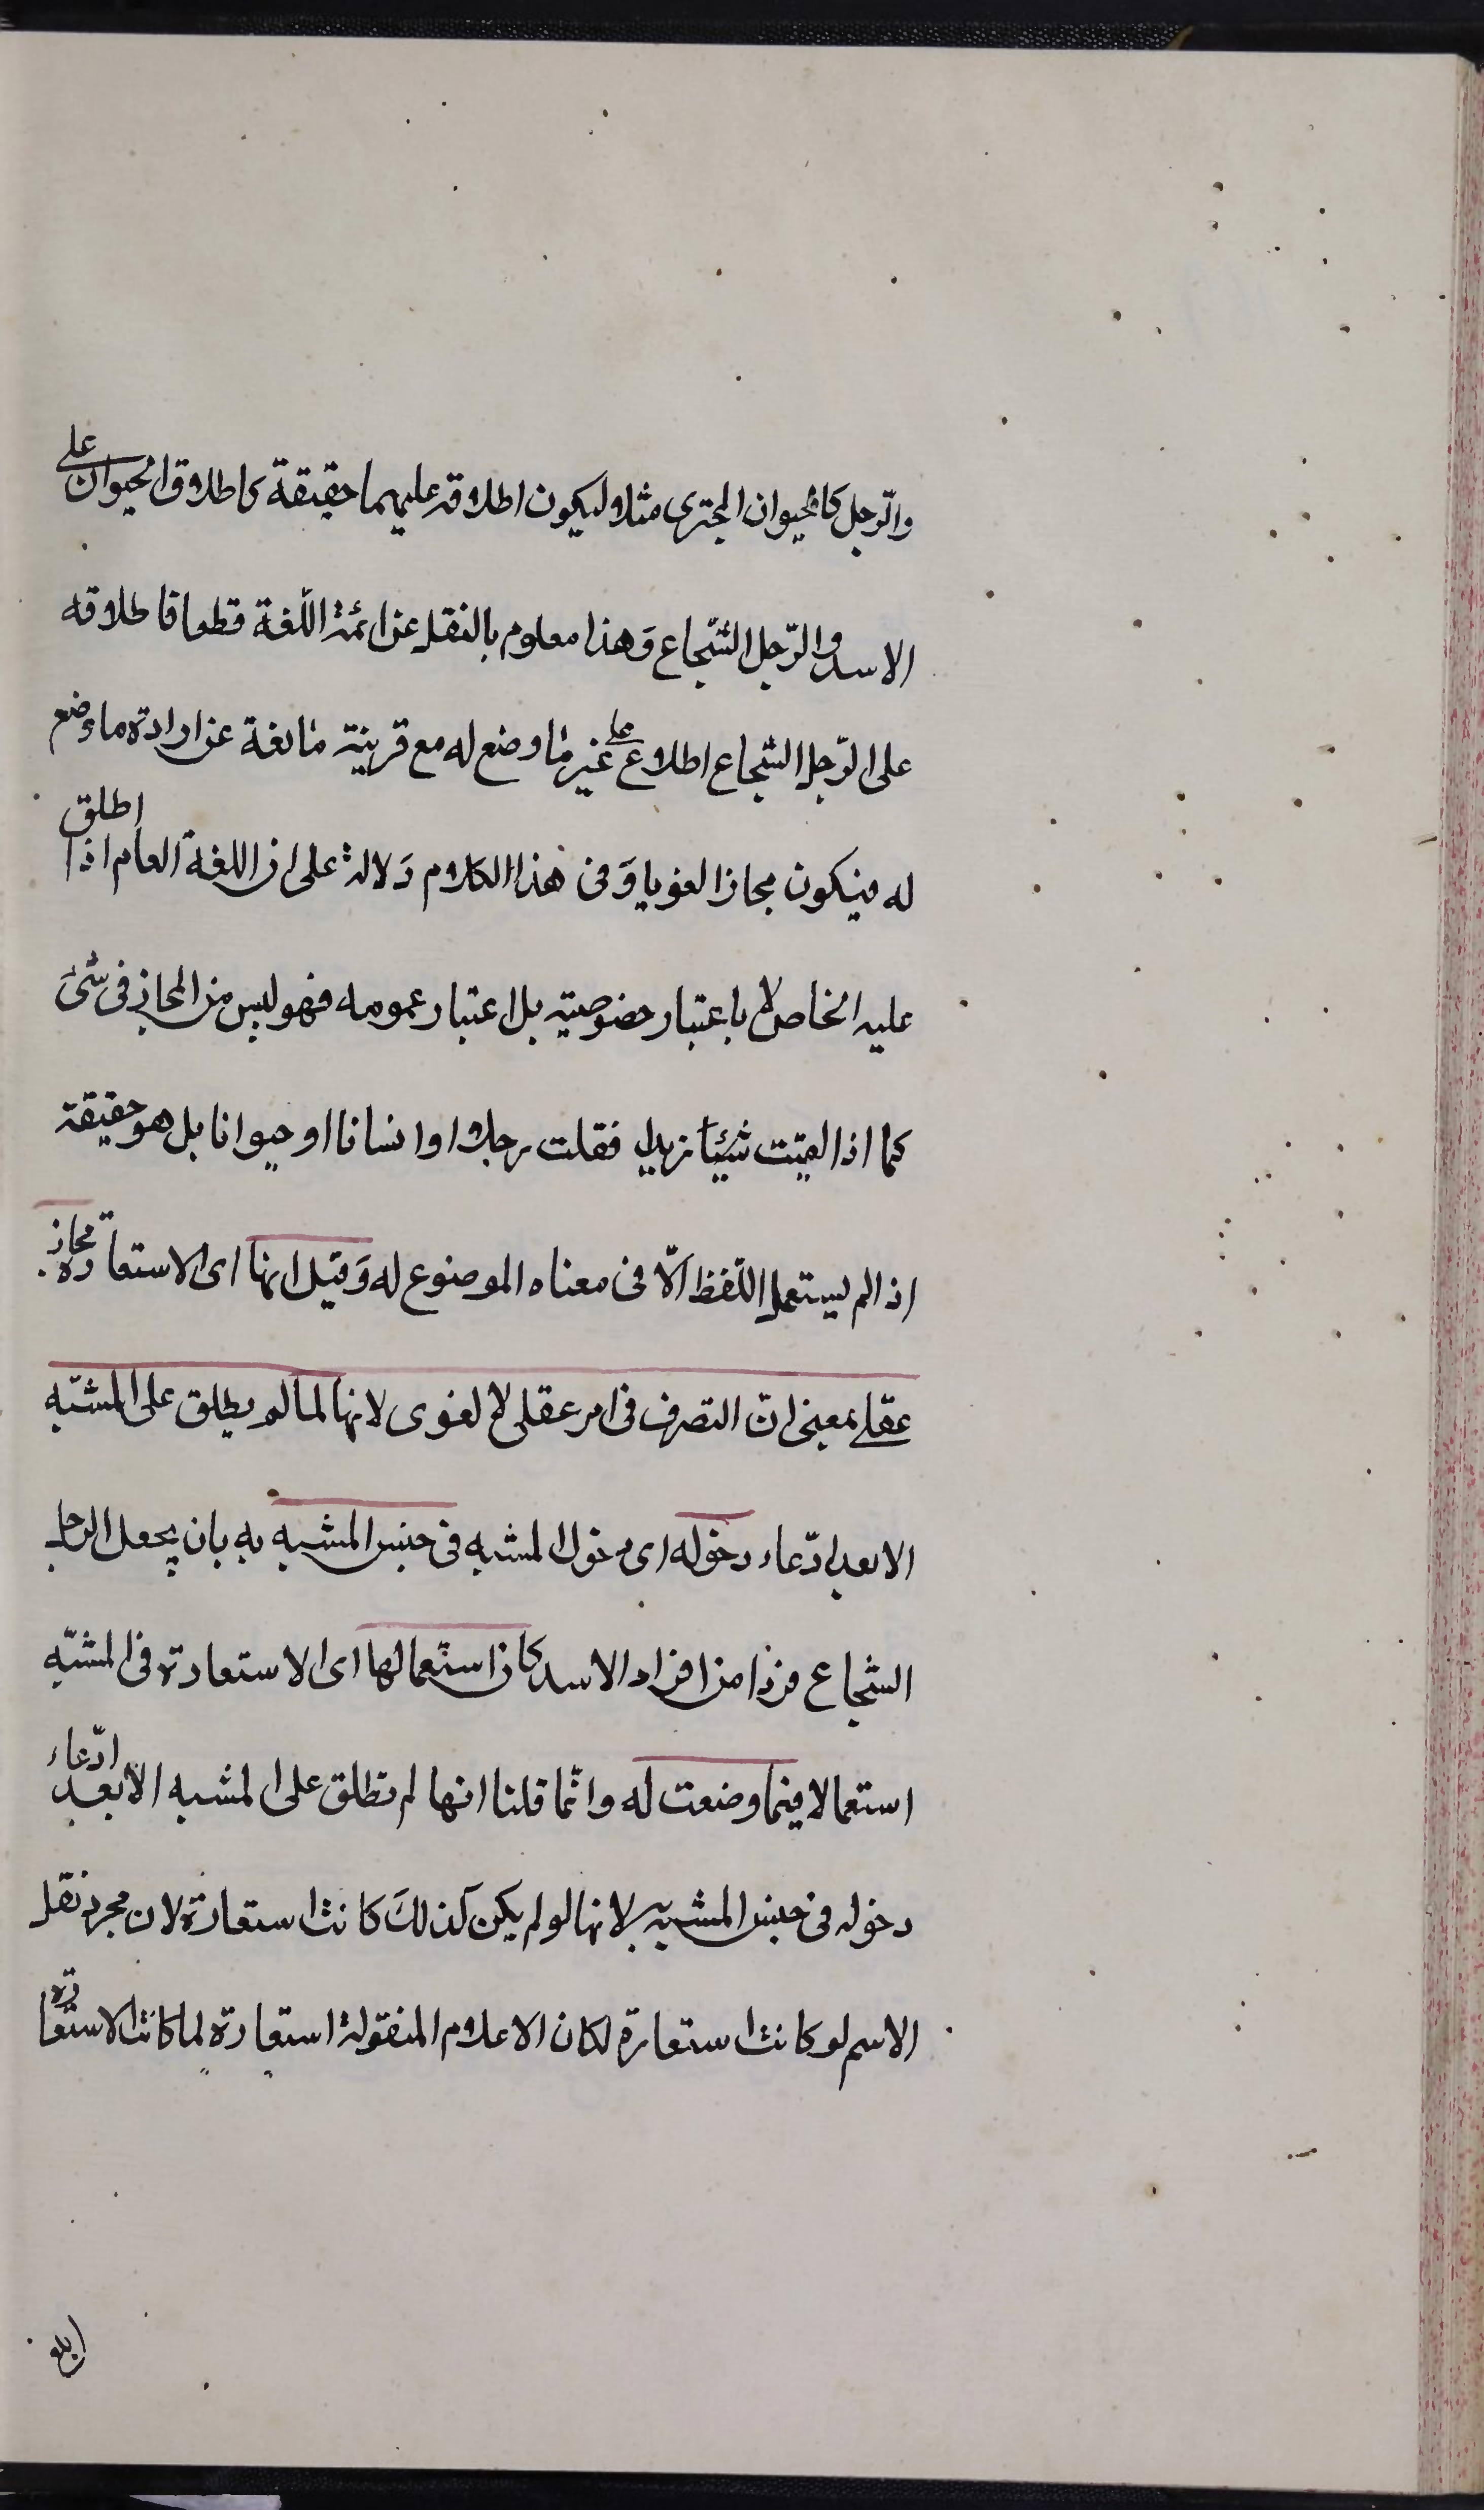 والرّجل كالحيوان المجترى مثلا وليكون اطلاقه عليهما حقيقة كاطلاق الحيوان على
الاسد والرّجل الشّجاع وَهذا معلوم بالنقل عن ائمة اللّغة قطعا فاطلاقه
على الرّجل الشجاع اطلاع على غير ما وضع له مع قرينة مانعة عن ارادة ما وضع
له فيكون مجازا لغويا وَفى هذا الكلام دَلالة على ان اللغة العام اذا اطلق
عليه الخاص لا باعتبار خصوصيته بل اعتبار عمومه فهو ليس من المجاز فى شئ
كما اذا لقيت شيئا زيدا فقلت رجلا او انسانا او حيوانا بل هو حقيقة
اذا لم يستعمل اللّفظ الّا فى معناه الموضوع له وَقيل انها اى الاستعارة مجاز
عقلى بمعنى انّ التصرف فى امر عقلى لا لغوى لانها لما لم يطلق على المشبّه
الا بعد ادّعاء دخوله اى دخول المشبه فى جنس المشبه به بان يجعل الرجل
الشجاع فردا من افراد الاسد كان استعمالها اى الاستعارة فى المشبّه
استعمالا فيما وضعت له وانّما قلنا انها لم تطلق على المشبه الا بعد ادّعاء
دخوله فى جنس المشبه به لانها لو لم يكن كذلكَ كانت استعارة لان مجرد نقل
الاسم لو كانت استعارة لكان الاعلام المنقولة استعارة لما كانت الاستعارة